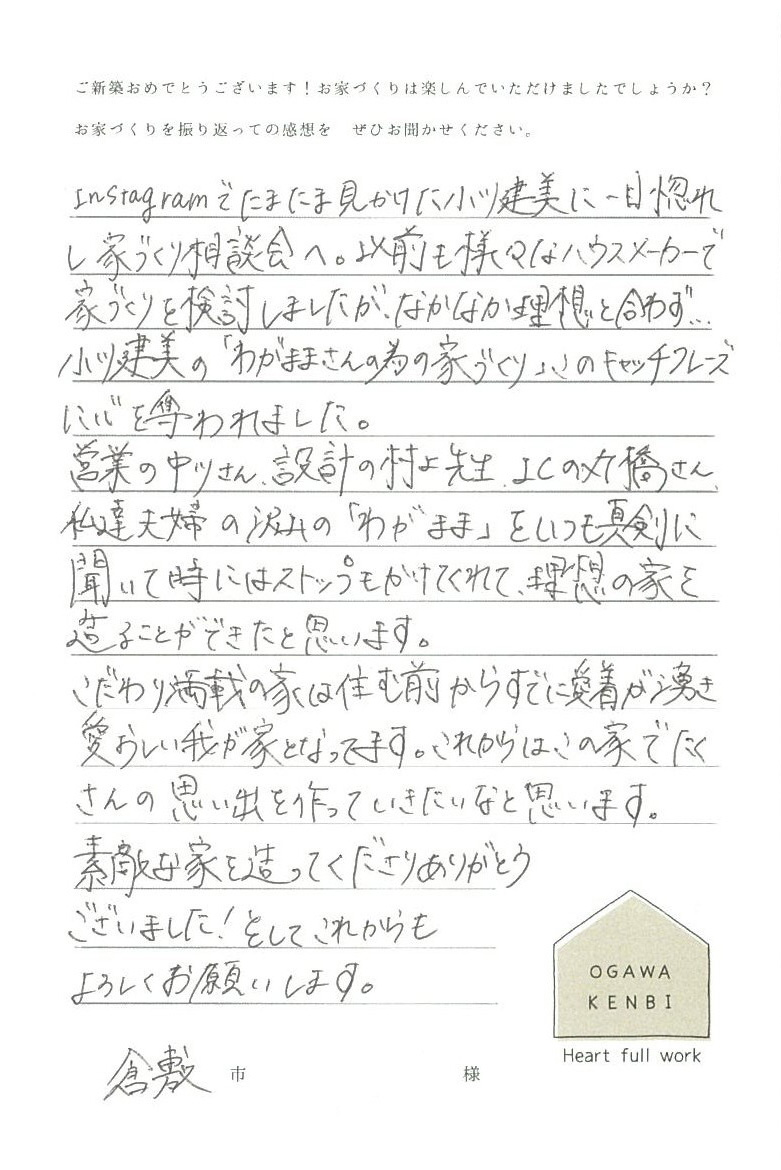 ご新築おめでとうございます！お家づくりは楽しんでいただけましたでしょうか？
お家づくりを振り返っての感想を　ぜひお聞かせください。
Instagramでたまたま見かけた小川建美に一目惚れ
し家づくり相談会へ。以前も様々なハウスメーカーで
家づくりを検討しましたが、なかなか理想と合わず…
小川建美の「わがままさんの為の家づくり」、このキャッチフレーズ
に心を奪われました。
営業の中川さん、設計の村上先生、ICの大橋さん、
私達夫婦の沢山の「わがまま」をいつも真剣に
聞いて時にはストップもかけてくれて、理想の家を
造ることができたと思います。
こだわり満載の家は住む前からすでに愛着が湧き
愛おしい我が家となってます。これからはこの家でたく
さんの思い出を作っていきたいなと思います。
素敵な家を造ってくださりありがとう
ございました！そしてこれからも
よろしくお願いします。
倉敷 市 様
OGAWA
KENBI
Heart full work